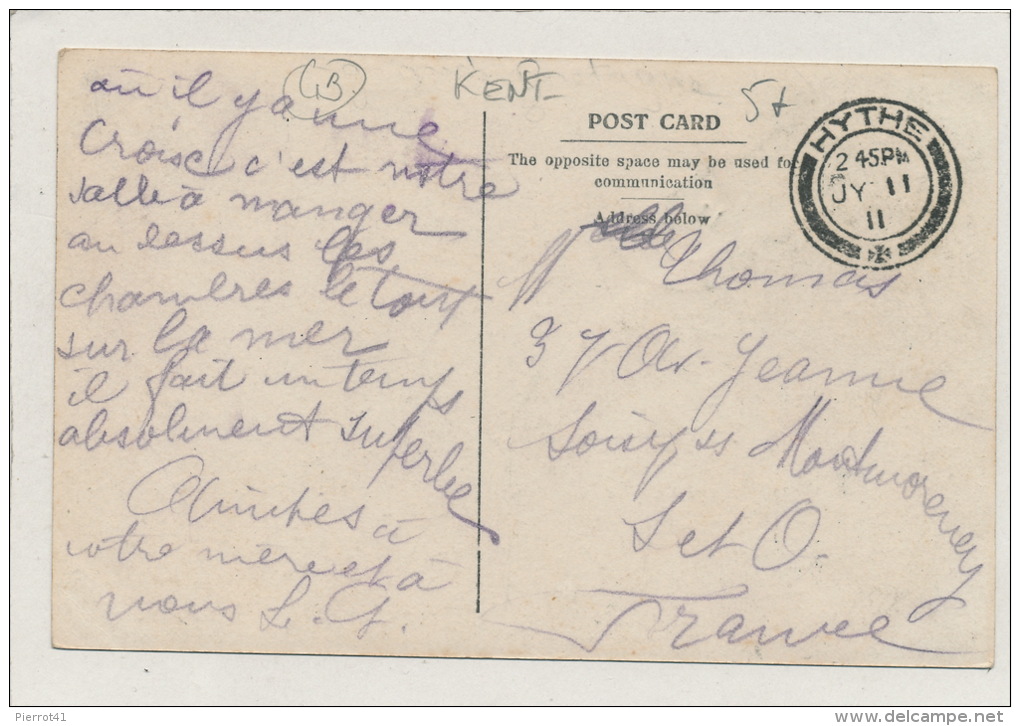 GB
KENT
5+
où il y a une
Croise c'est notre
salle à manger
au dessus les
chambres le tout
sur la mer
il fait un temps
absolument superbe
Amitiés à
votre mère et à
vous L. G.
POST CARD
The opposite space may be used for
communication
Address below
HYTHE
2 45PM
JY 11
11
M Thomas
37 Av. Jeanne
Soisy ss Montmorency
S et O.
France
Pierrot41
www.delcampe.net